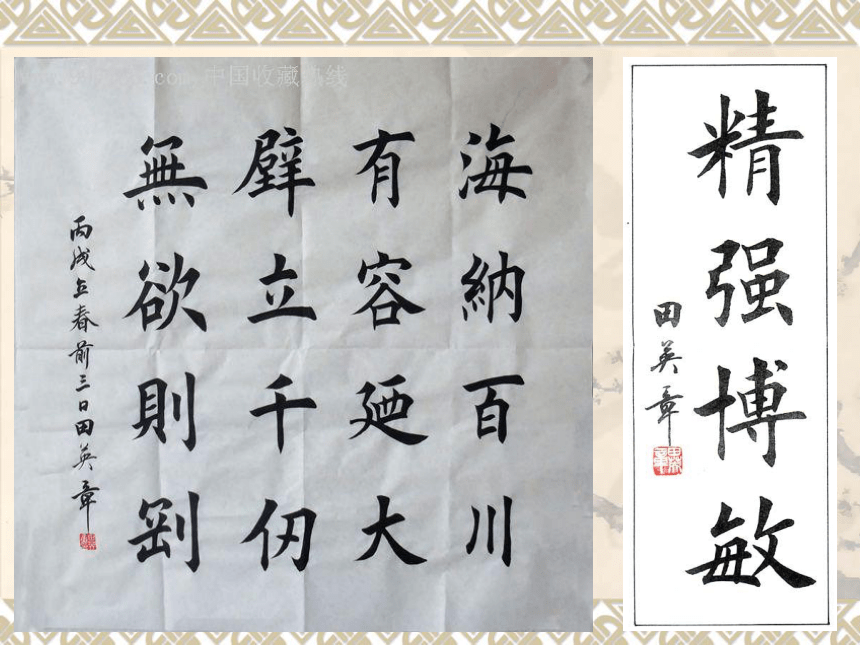 海納百川
有容廼大
壁立千仞
無欲則剛
丙戌立春前三日田英章
精强博敏
田英章
.com 中国收藏热线